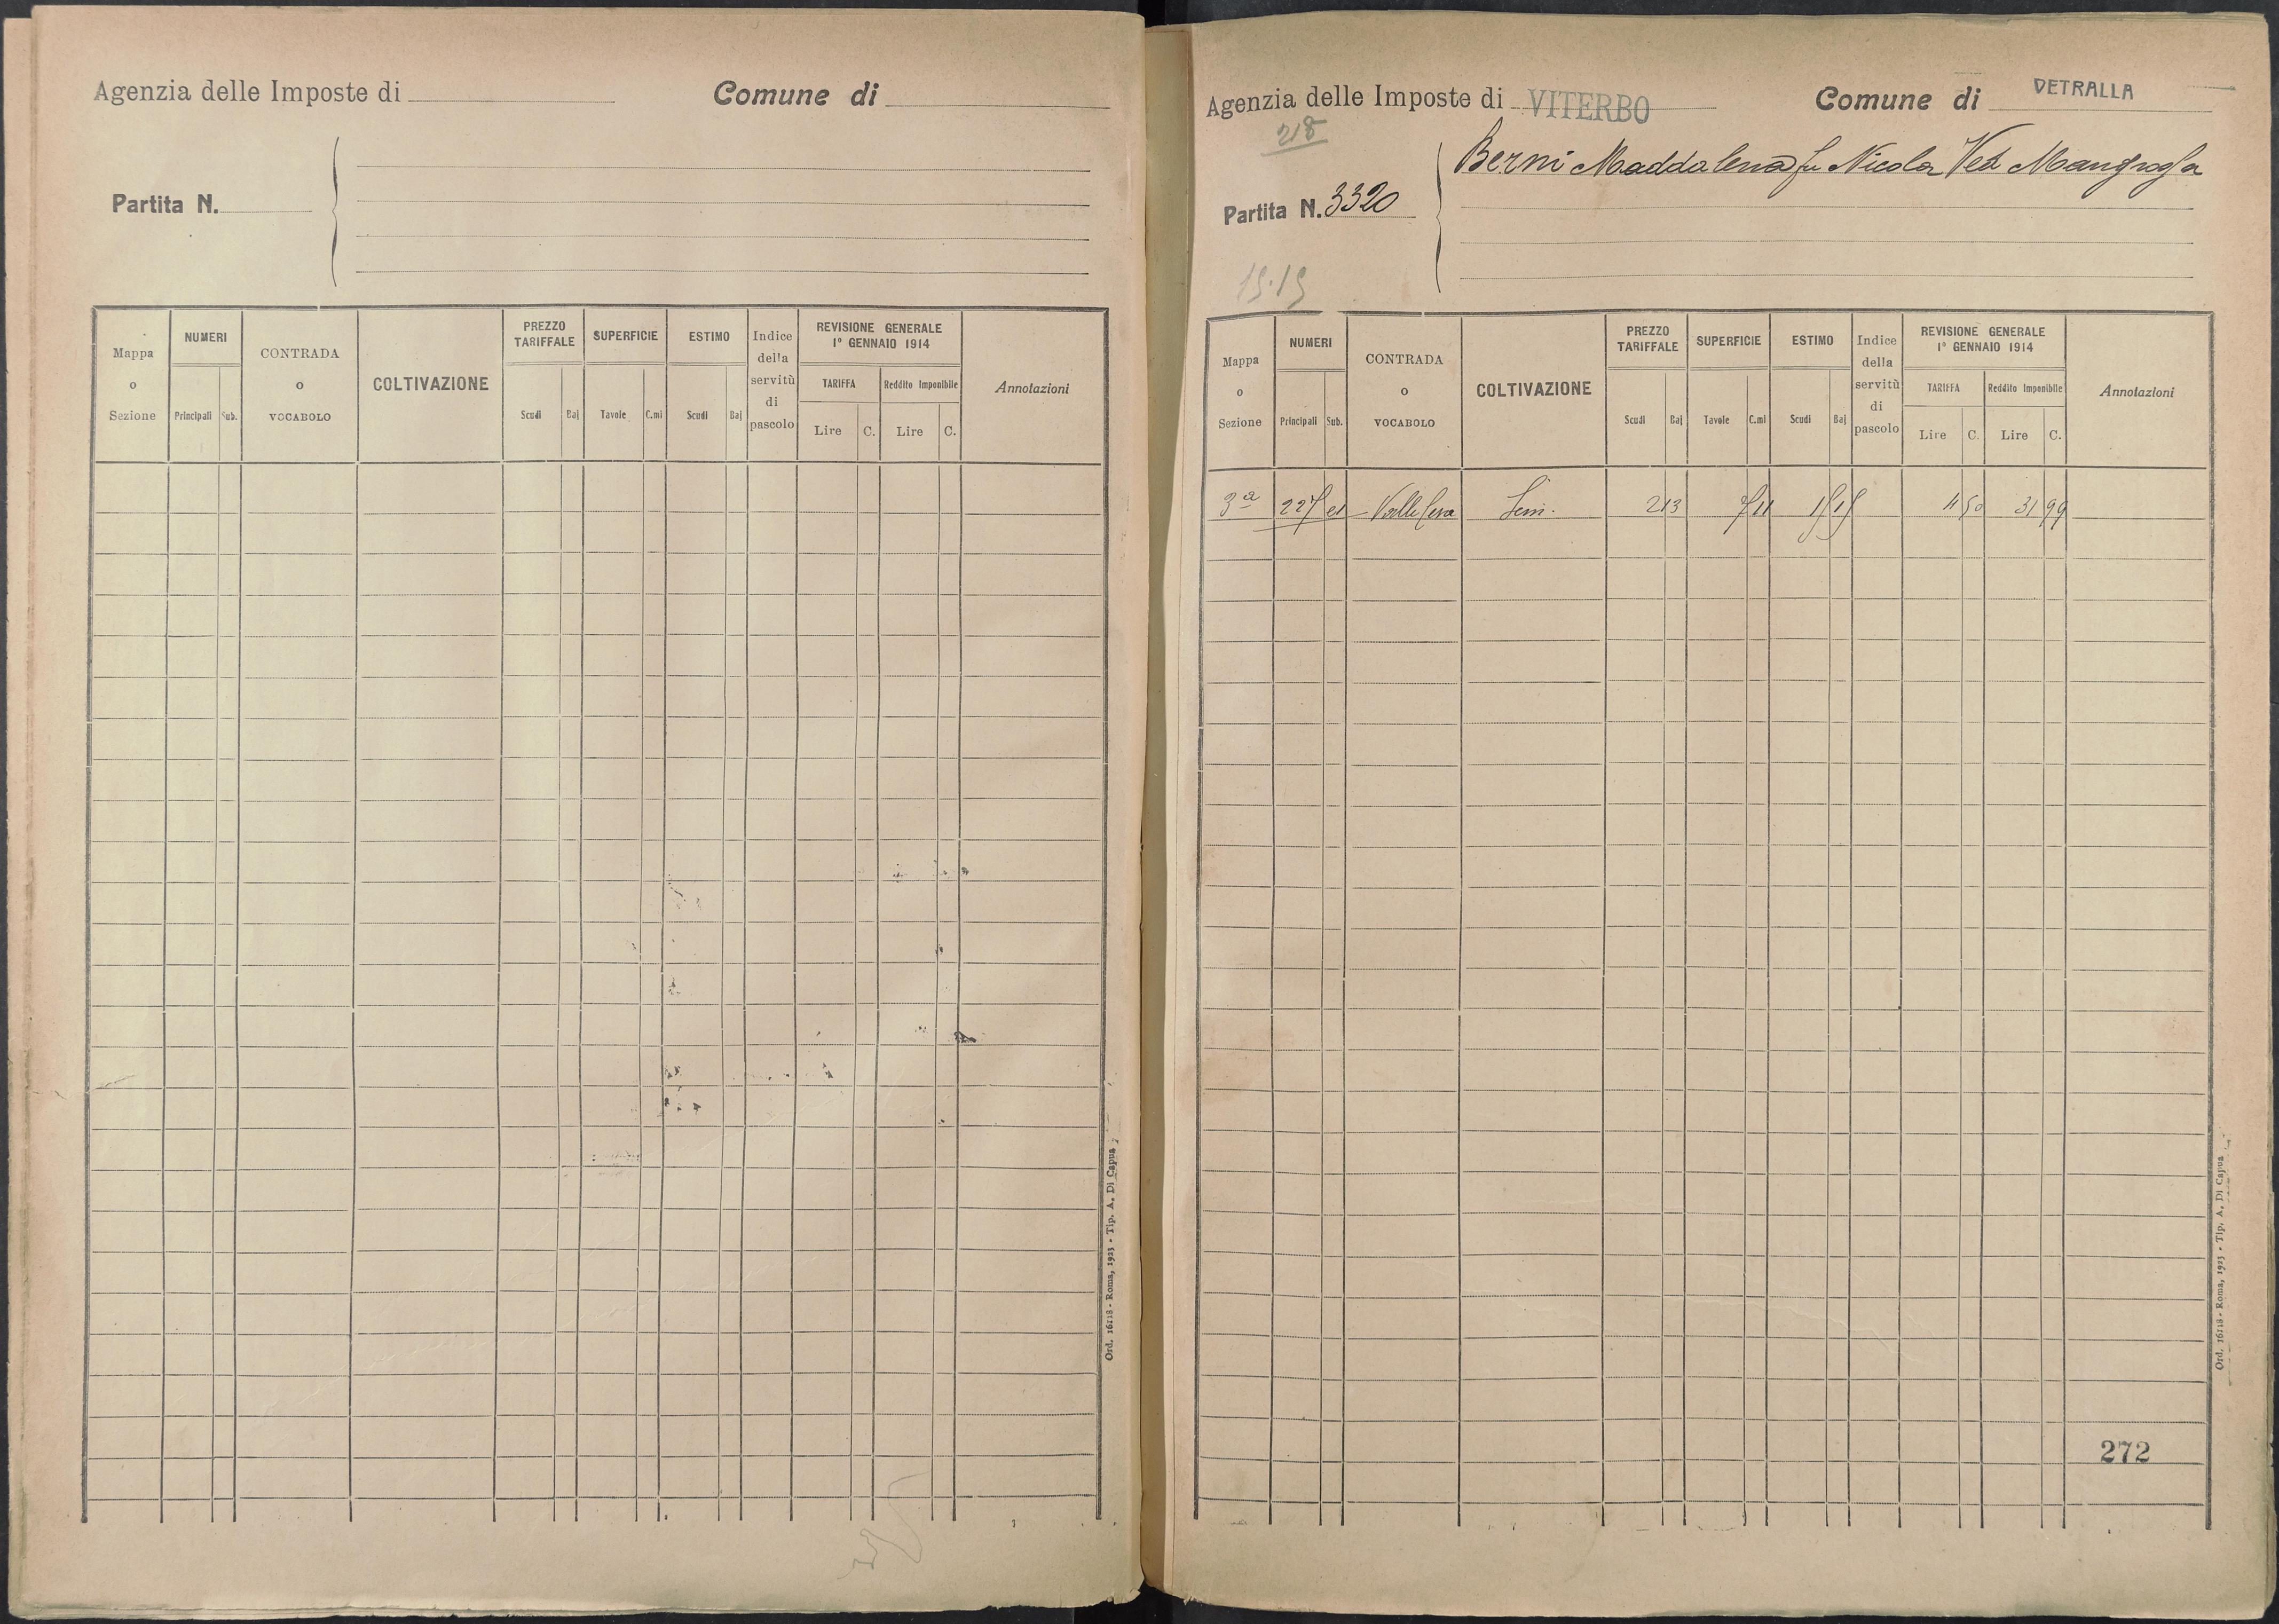 Agenzia delle Imposte di
Comune di
Partita N.
Mappa o Sezione
NUMERI
Principali Sub.
CONTRADA o VOCABOLO
COLTIVAZIONE
PREZZO TARIFFALE
Scudi Baj
SUPERFICIE
Tavole C.mi
ESTIMO
Scudi Baj
Indice della servitù di pascolo
REVISIONE GENERALE
1° GENNAIO 1914
TARIFFA Reddito Imponibile
Lire C. Lire C.
Annotazioni
Ord. 16118 - Roma, 1923 - Tip. A. Di Capua
Agenzia delle Imposte di VITERBO
Comune di VETRALLA
218
Berni Maddalena fu Nicola Ved
Partita N. 3320
15.15
Mappa o Sezione
NUMERI
Principali Sub.
CONTRADA o VOCABOLO
COLTIVAZIONE
PREZZO TARIFFALE
Scudi Baj
SUPERFICIE
Tavole C.mi
ESTIMO
Scudi Baj
Indice della servitù di pascolo
REVISIONE GENERALE
1° GENNAIO 1914
TARIFFA Reddito Imponibile
Lire C. Lire C.
Annotazioni
3ª 227 Valle Sem. 2 13 7 11 15 15 4 50 31 99
272
Ord. 16118 - Roma, 1923 - Tip. A. Di Capua